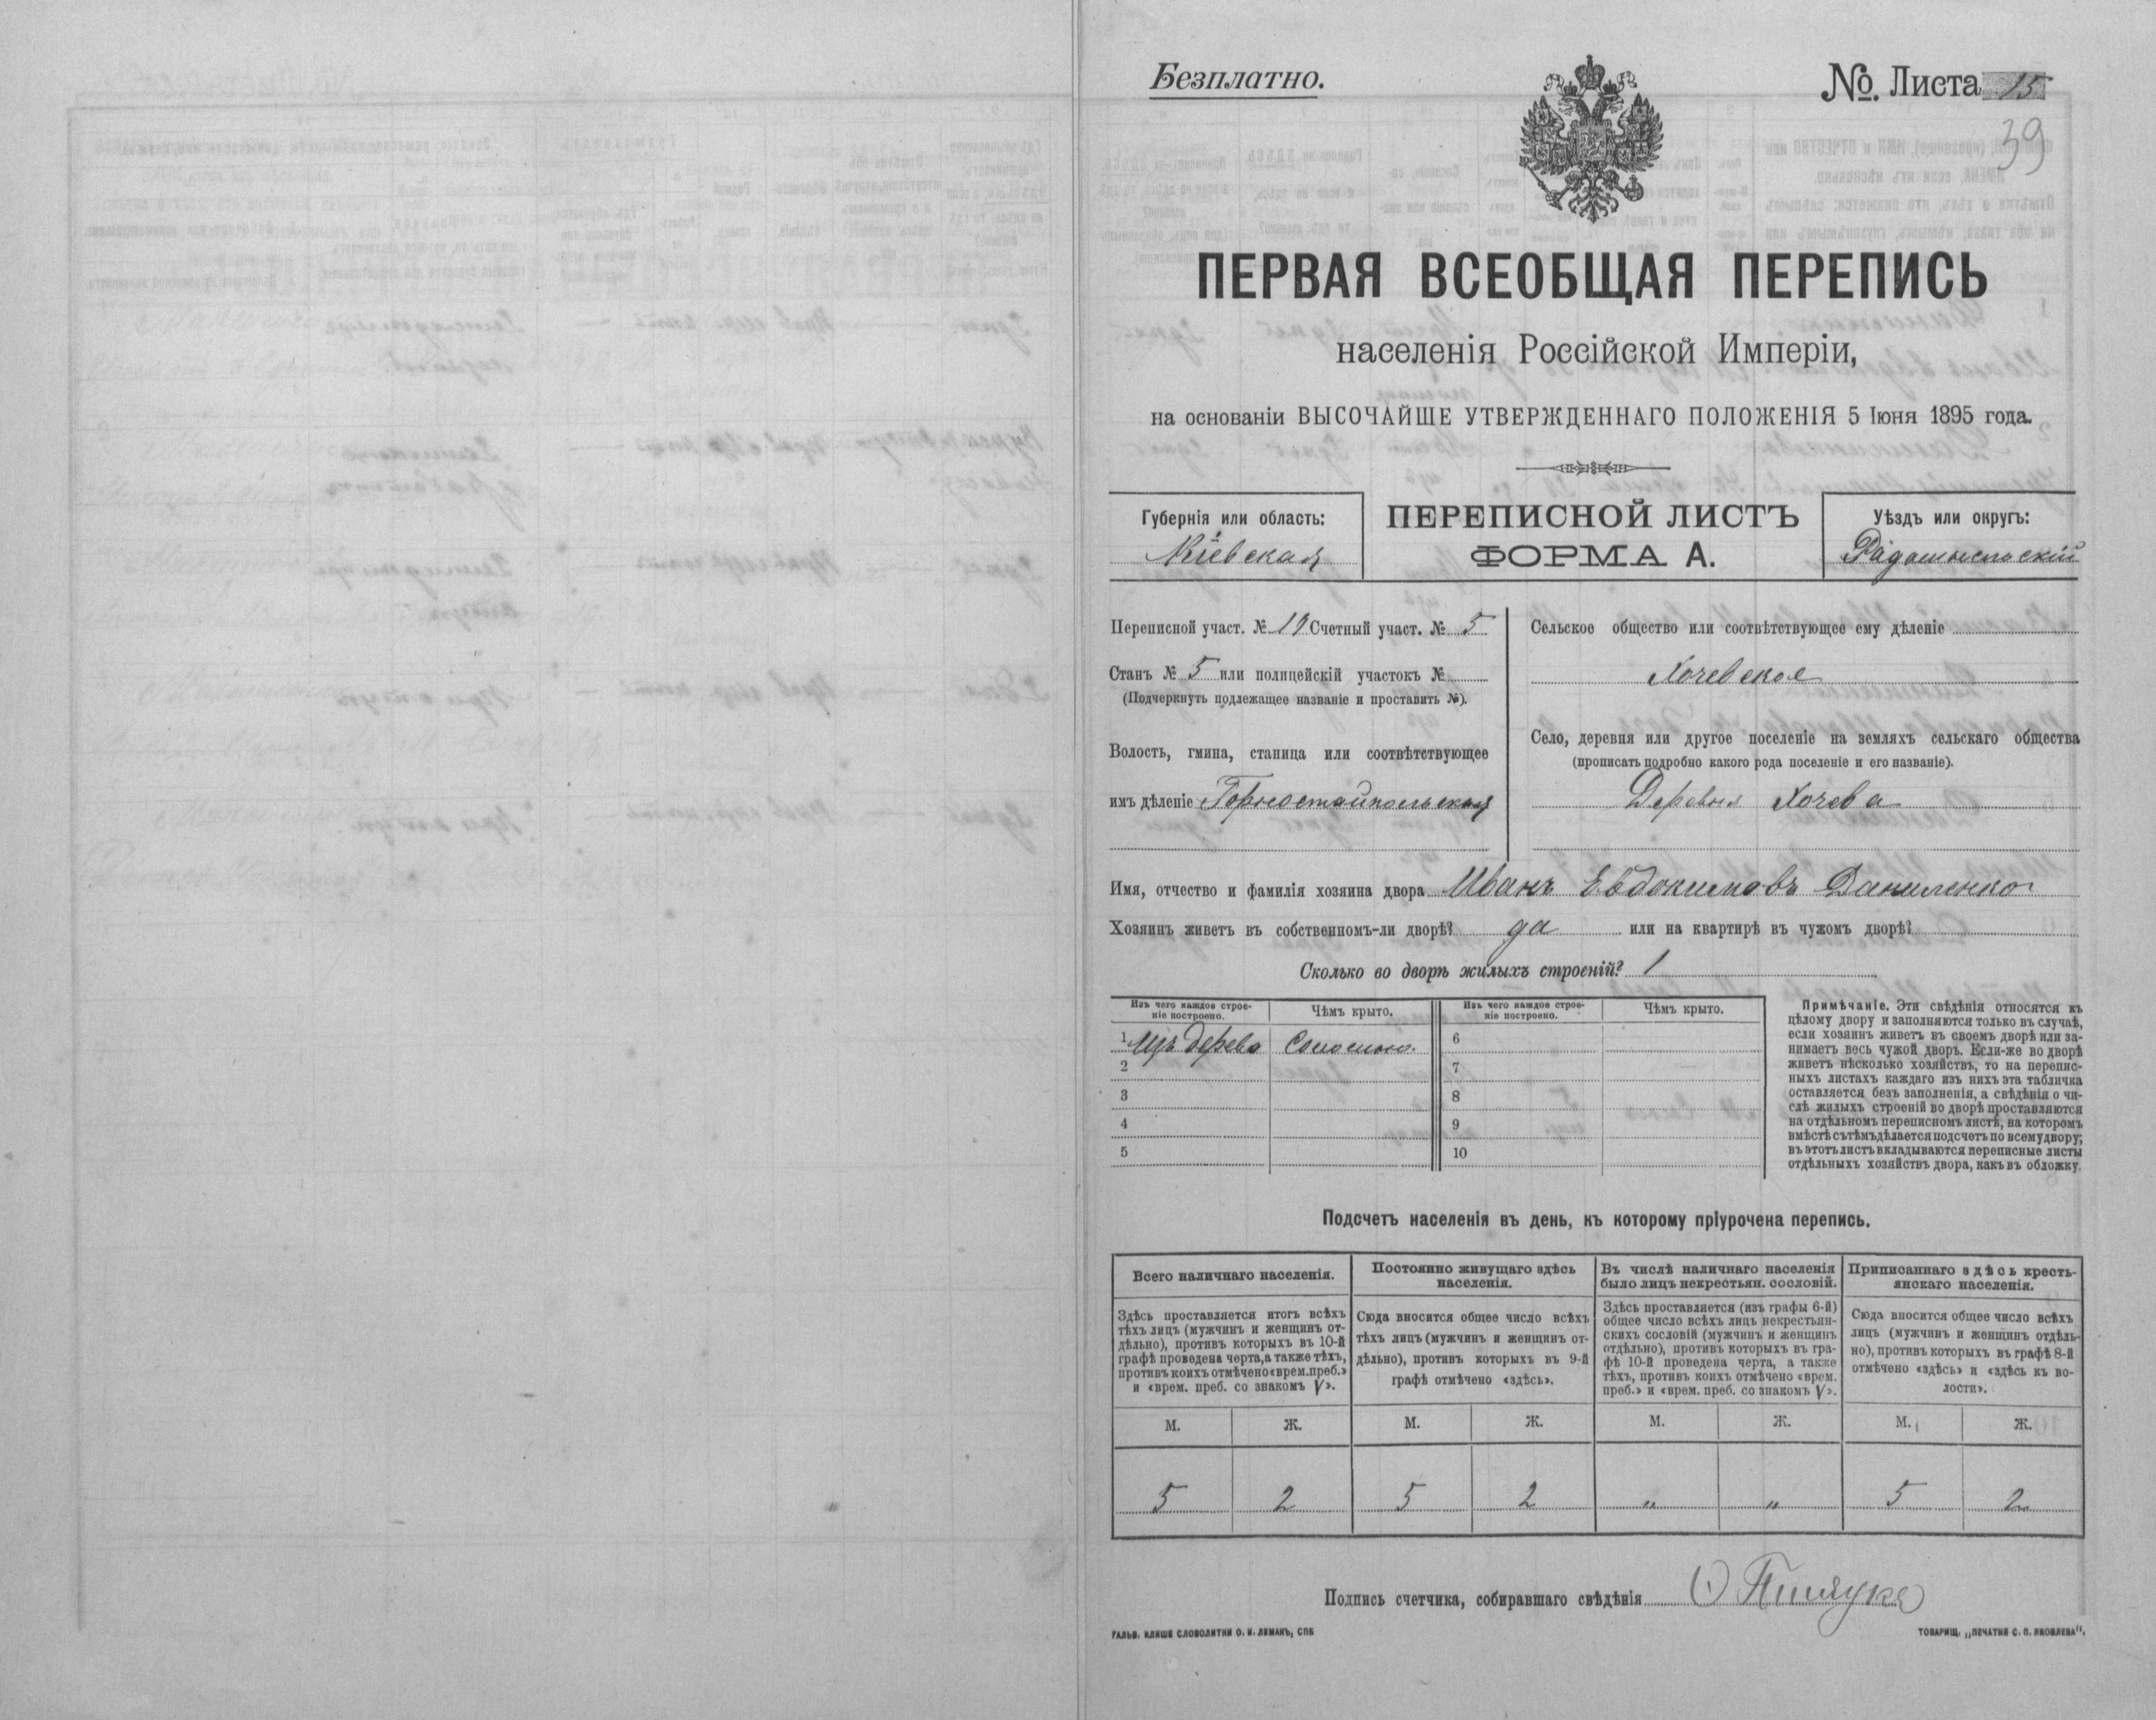 Безплатно.
№. Листа 15
39
ПЕРВАЯ ВСЕОБЩАЯ ПЕРЕПИСЬ
населенія Россійской Имперіи,
на основаніи ВЫСОЧАЙШЕ УТВЕРЖДЕННАГО ПОЛОЖЕНІЯ 5 Іюня 1895 года.
Губернія или область:
Кіевская
ПЕРЕПИСНОЙ ЛИСТЪ
ФОРМА А.
Уѣздъ или округъ:
Радомысльскій
Переписной участ. № 19 Счетный участ. № 5
Станъ № 5 или полицейскій участокъ №
(Подчеркнуть подлежащее названіе и проставить №).
Волость, гмина, станица или соотвѣтствующее
имъ дѣленіе Горностайпольская
Сельское общество или соотвѣтствующее ему дѣленіе
Хочевское
Село, деревня или другое поселеніе на земляхъ сельскаго общества
(прописать подробно какого рода поселеніе и его названіе).
Деревня Хочева
Имя, отчество и фамилія хозяина двора Иванъ Евдокимовъ Даниленко
Хозяинъ живетъ въ собственномъ-ли дворѣ? да или на квартирѣ въ чужомъ дворѣ?
Сколько во дворѣ жилыхъ строеній? 1
Изъ чего каждое строе-
ніе построено.
Чѣмъ крыто.
Изъ чего каждое строе-
ніе построено.
Чѣмъ крыто.
1 Изъ дерева Соломою.
2
3
4
5
6
7
8
9
10
Примѣчаніе. Эти свѣдѣнія относятся къ
цѣлому двору и заполняются только въ случаѣ,
если хозяинъ живетъ въ своемъ дворѣ или за-
нимаетъ весь чужой дворъ. Если-же во дворѣ
живетъ нѣсколько хозяйствъ, то на перепис-
ныхъ листахъ каждаго изъ нихъ эта табличка
оставляется безъ заполненія, а свѣдѣнія о чи-
слѣ жилыхъ строеній во дворѣ проставляются
на отдѣльномъ переписномъ листѣ, на которомъ
вмѣстѣ съ тѣмъ дѣлается подсчетъ по всему двору;
въ этотъ листъ вкладываются переписные листы
отдѣльныхъ хозяйствъ двора, какъ въ обложку.
Подсчетъ населенія въ день, къ которому пріурочена перепись.
Всего наличнаго населенія.
Здѣсь проставляется итогъ всѣхъ
тѣхъ лицъ (мужчинъ и женщинъ от-
дѣльно), противъ которыхъ въ 10-й
графѣ проведена черта, а также тѣхъ,
противъ коихъ отмѣчено «врем. преб.»
и «врем. преб. со знакомъ V».
Постоянно живущаго здѣсь
населенія.
Сюда вносится общее число всѣхъ
тѣхъ лицъ (мужчинъ и женщинъ от-
дѣльно), противъ которыхъ въ 9-й
графѣ отмѣчено «здѣсь».
Въ числѣ наличнаго населенія
было лицъ некрестьян. сословій.
Здѣсь проставляется (изъ графы 6-й)
общее число всѣхъ лицъ некрестьян-
скихъ сословій (мужчинъ и женщинъ
отдѣльно), противъ которыхъ въ гра-
фѣ 10-й проведена черта, а также
тѣхъ, противъ коихъ отмѣчено «врем.
преб.» и «врем. преб. со знакомъ V».
Приписаннаго здѣсь кресть-
янскаго населенія.
Сюда вносится общее число всѣхъ
лицъ (мужчинъ и женщинъ отдѣль-
но), противъ которыхъ въ графѣ 8-й
отмѣчено «здѣсь» и «здѣсь къ во-
лости».
М. Ж. М. Ж. М. Ж. М. Ж.
5 2 5 2 " " 5 2
Подпись счетчика, собиравшаго свѣдѣнія
ГАЛЬВ. КЛИШЕ СЛОВОЛИТНИ О. И. ЛЕМАНЪ, СПБ
ТОВАРИЩ. „ПЕЧАТНЯ С. П. ЯКОВЛЕВА".